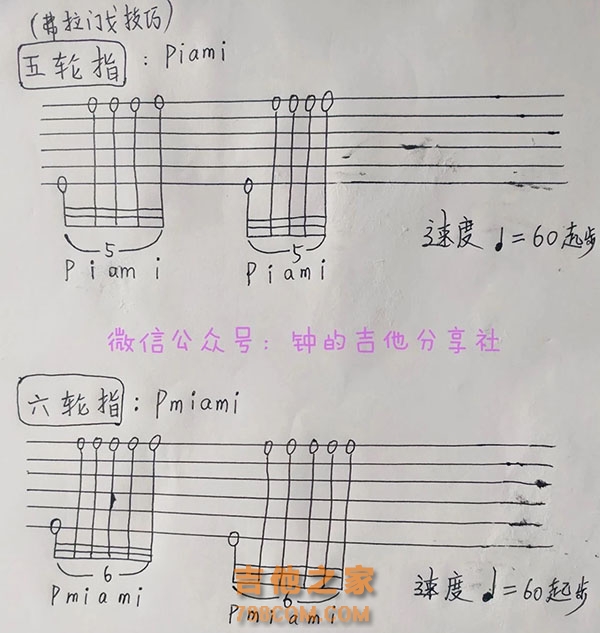 (弗拉门戈技巧)
五轮指：Piami
5
5
P i a m i
P i a m i
速度 ♩=60起步
微信公众号：钟的吉他分享社
六轮指：Pmiami
6
6
P m i a m i
P m i a m i
吉他之家
798COM.COM
速度 ♩=60起步